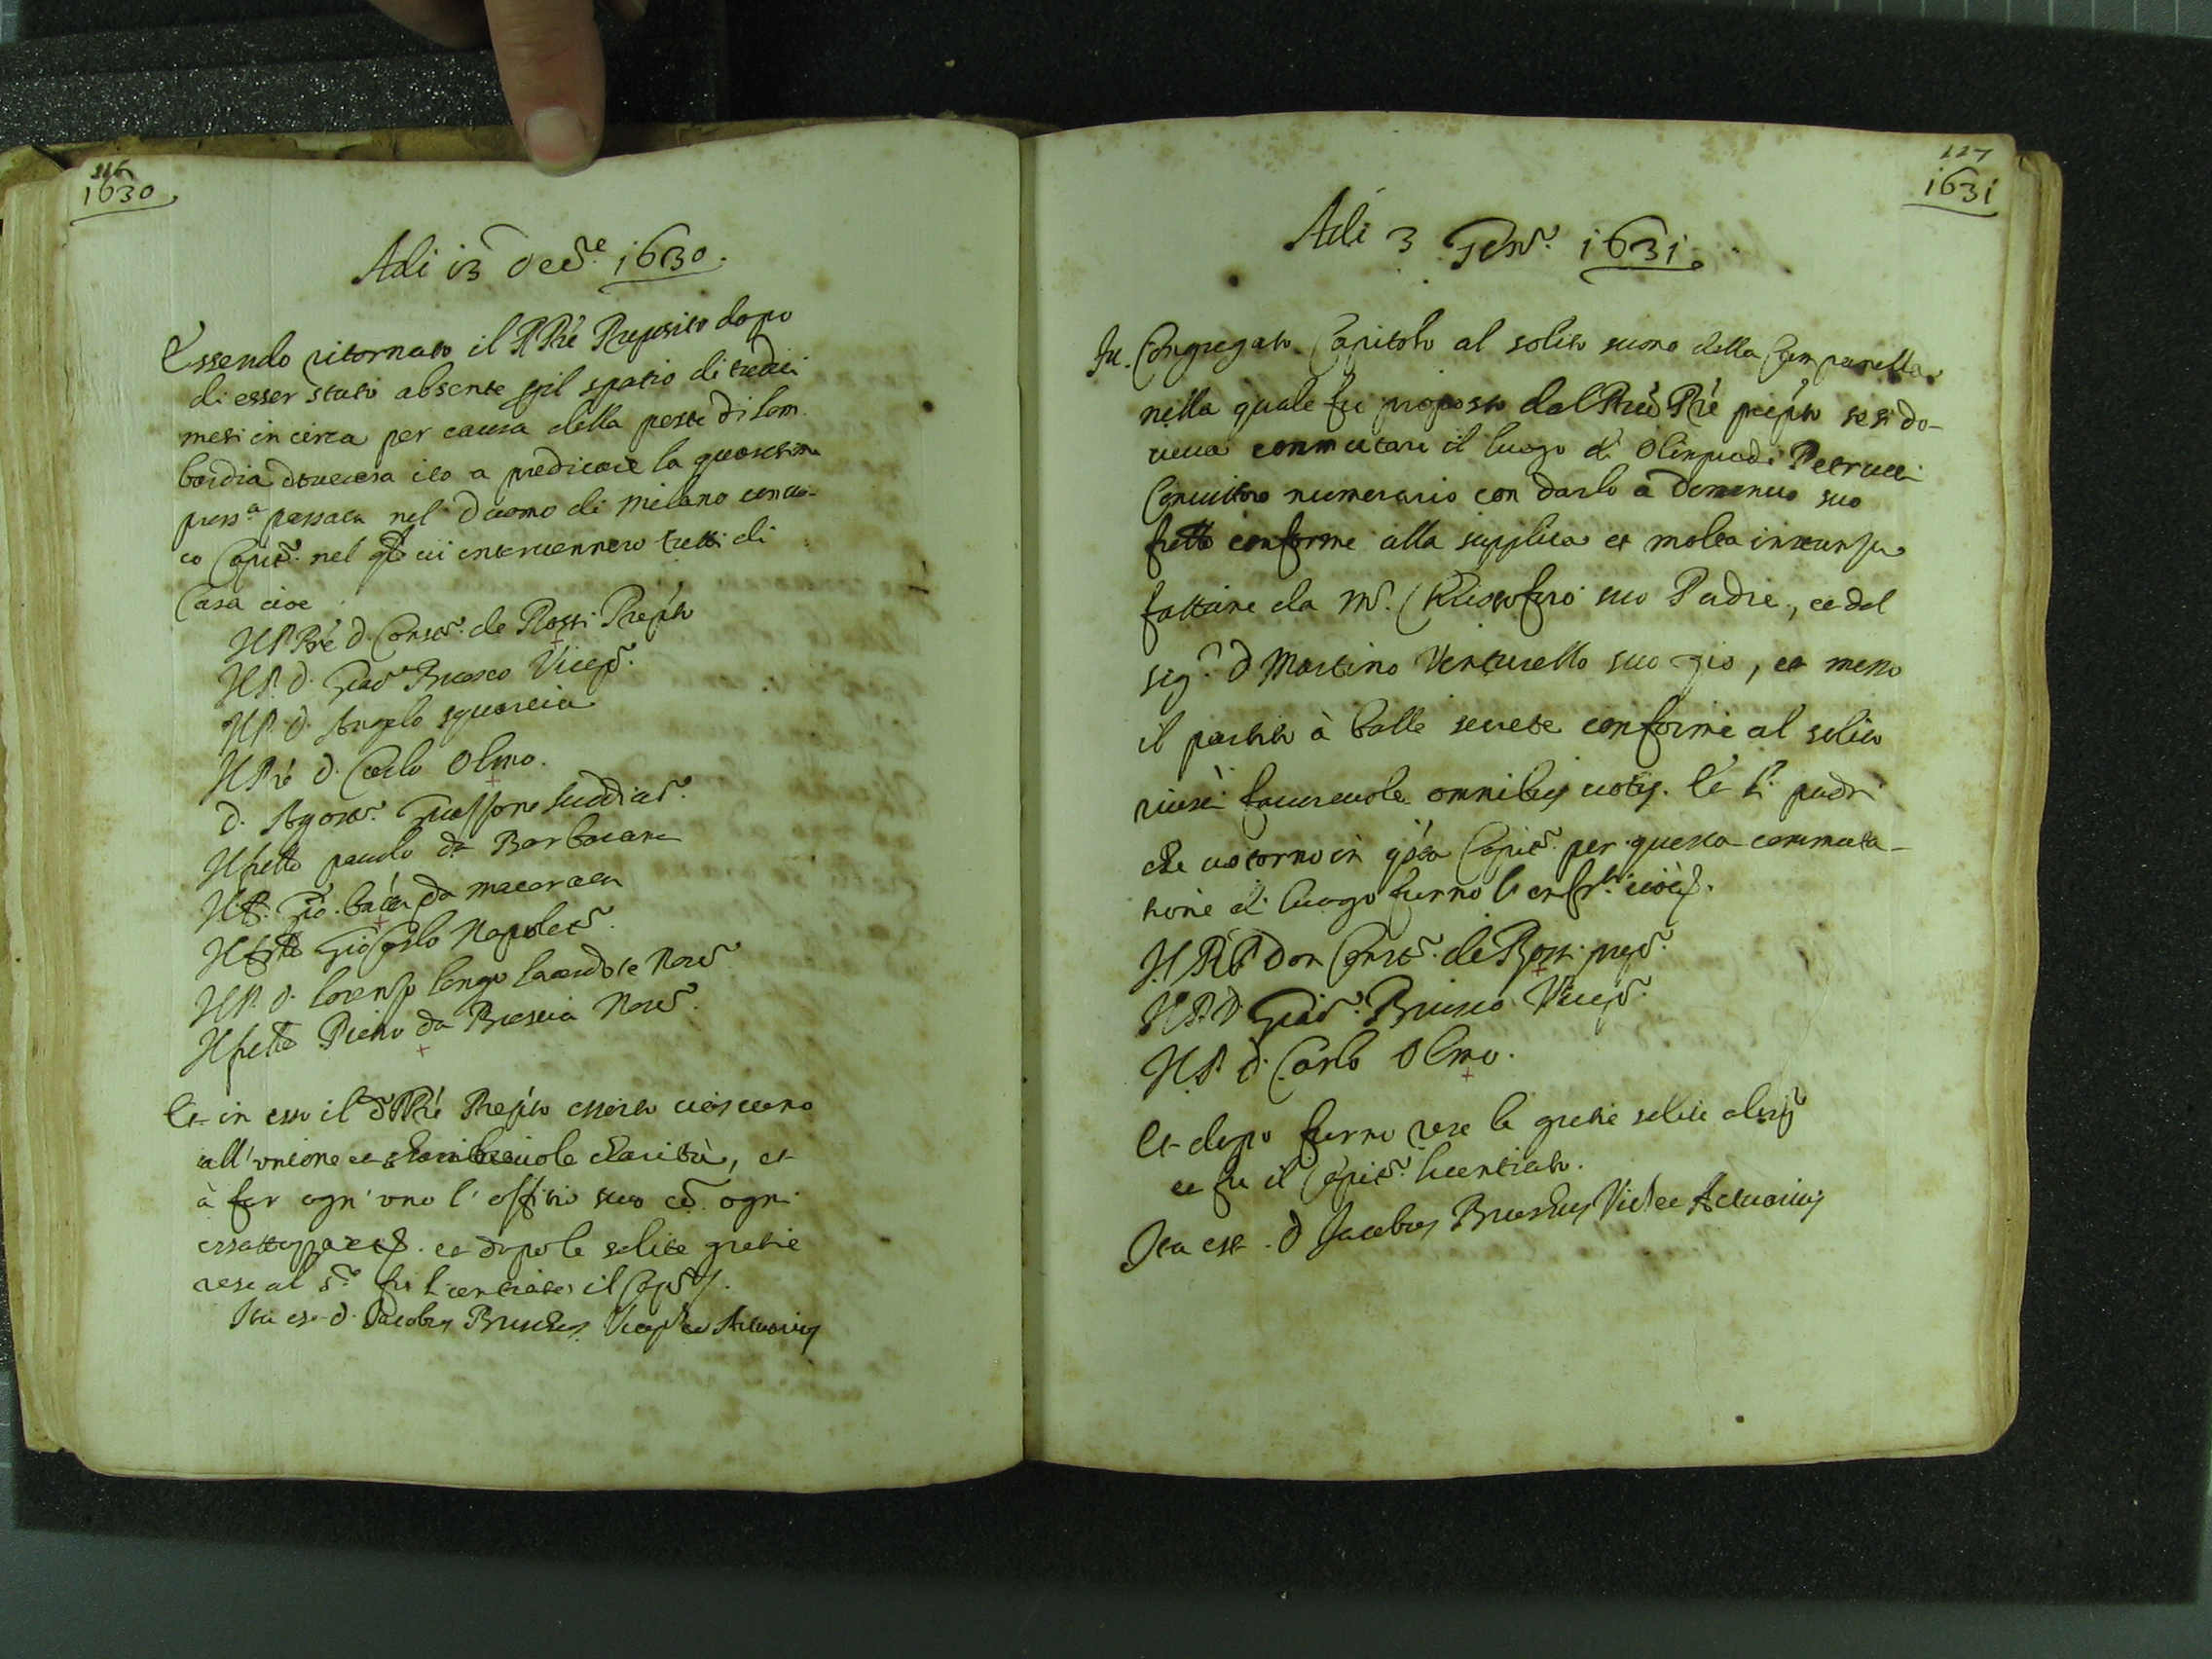 116
1630
Adi 13 Decre 1630.
Essendo ritornato il R Pre Preposito dopo
di esser stato absente p il spatio di tredici
mesi in circa per causa della peste di Lom
bardia dov'era ito a predicare la quaresima
pross.a passata nel Duomo di Milano convo-
co Capit. nel qle vi intervennero tutti di
Casa cioe
Il P Pre D. de Rossi Prepto
Il P. D. Giac Brusco Vicep.
Il P. D. Angelo squarcia
Il Pre D. Carlo Olmo.
D. Agost. Suddiac.
Il fretto paulo da Barbarano
Il F. Gio. batta da macerata
Il frtto Gio Carlo Napolet.
Il P. D. Lorenzo longo sacerdote Nov.
Il fretto Pietro da Brescia Nov.
Et in esso il d P Pre Prepto essorto ciascuno
all'unione et scambievole charità, et
à far ogn'uno l'offitio suo cō ogni
essattezza etc. et dopo le solite gratie
rese al S.re fu licentiato il Cap.
Ita est D. Jacobus Bruschus Vicep et Actuarius
117
1631
Adi 3 Gen. 1631.
Fu. Congregato Capitolo al solito suono della Campanella
nella quale fu proposto dal Pre prepto se si do-
veva commutare il luogo di Olimpio di Petrucci
Convittore numerario con darlo à Domenico suo
fretto conforme alla supplica et molta instanza
fattane da M. Christoforo suo Padre, et dal
sig. D Martino Venturello suo zio, et messo
il partito à balle secrete conforme al solito
riuscì favorevole omnibus votis. Et li padri
che votorno in qsto Capit. per questa commuta-
tione di luogo furno l'infrti cioè.
Il P Don Const. de Rossi prep.
Il P. D Giac. Brusco Vicep.
Il P. D. Carlo Olmo.
Et dopo furno rese le gratie solite al sig
et fu il Capit. licentiato.
Ita est. D Jacobus Bruschus Vic et Actuarius